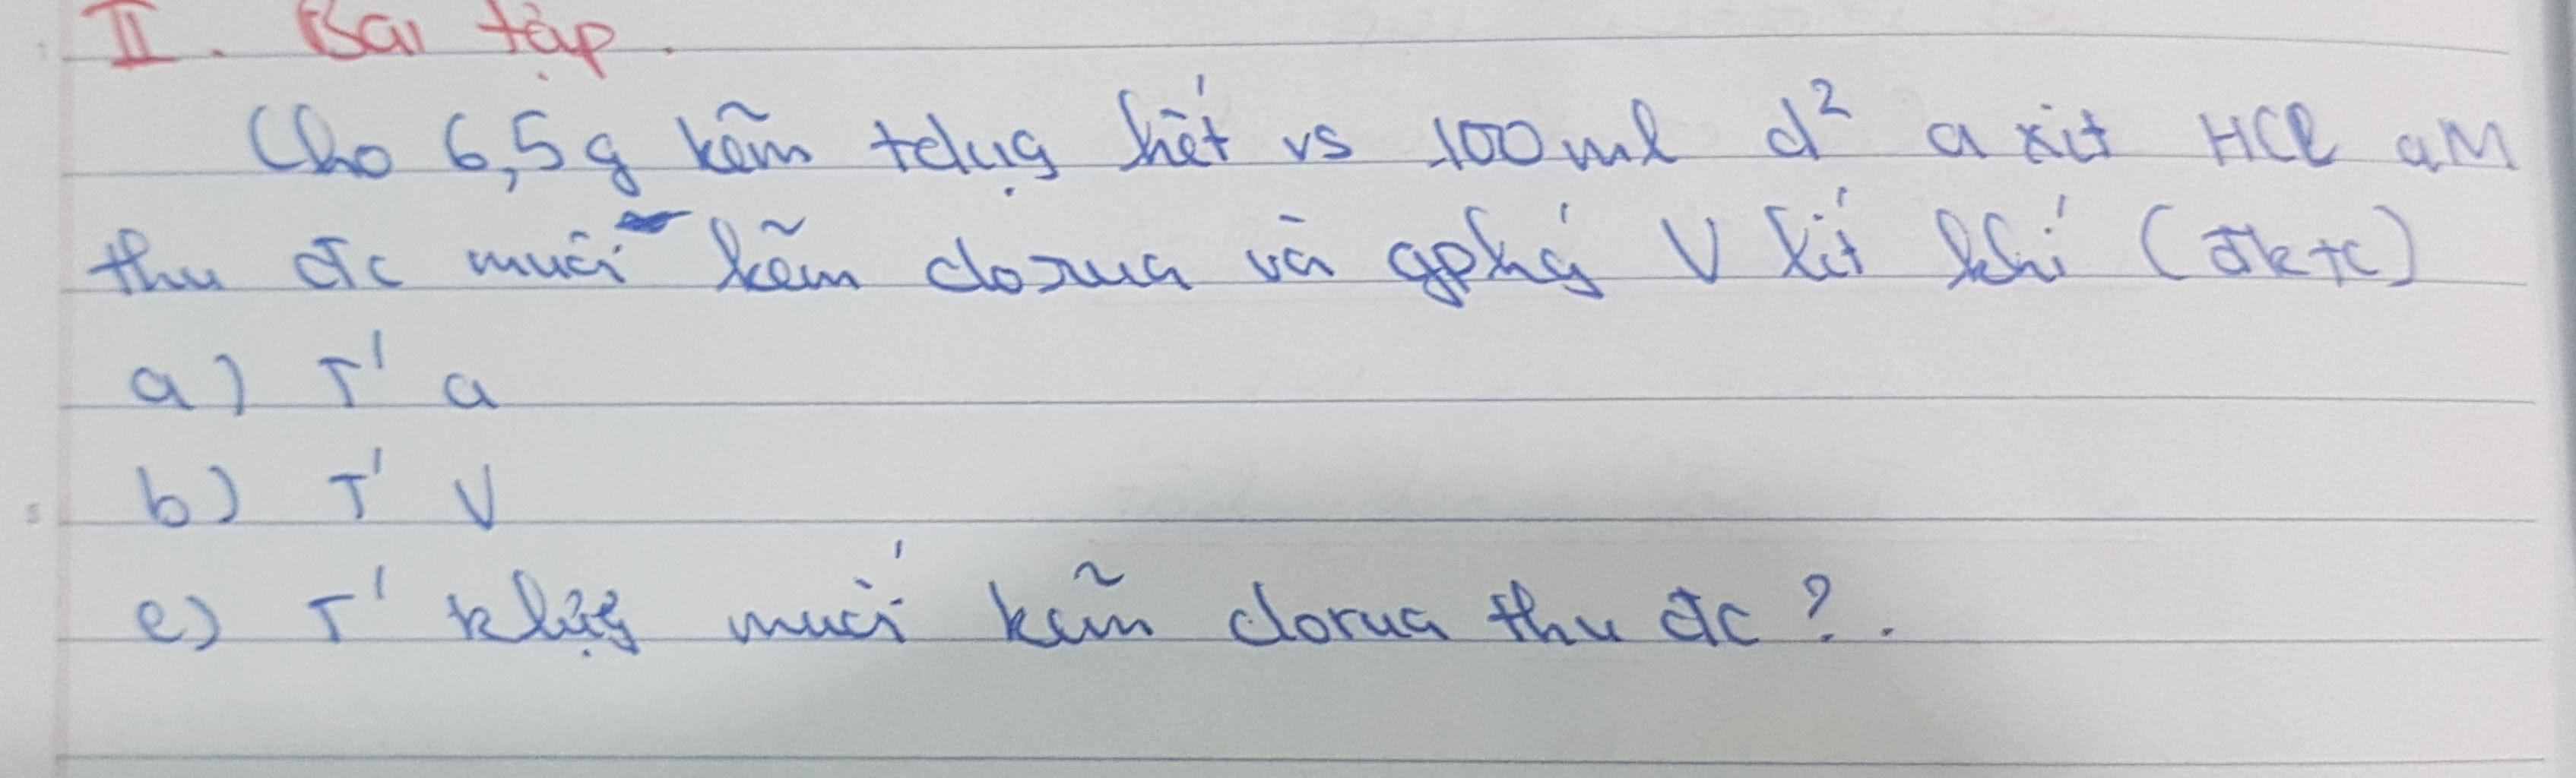 II. Bài tập.
Cho 6,5g kẽm tdụg hết vs 100ml d² axit HCl aM
thu đc muối kẽm clorua và gphg V lít khí (đktc)
a) T' a
b) T' V
c) T' klượg muối kẽm clorua thu đc?.